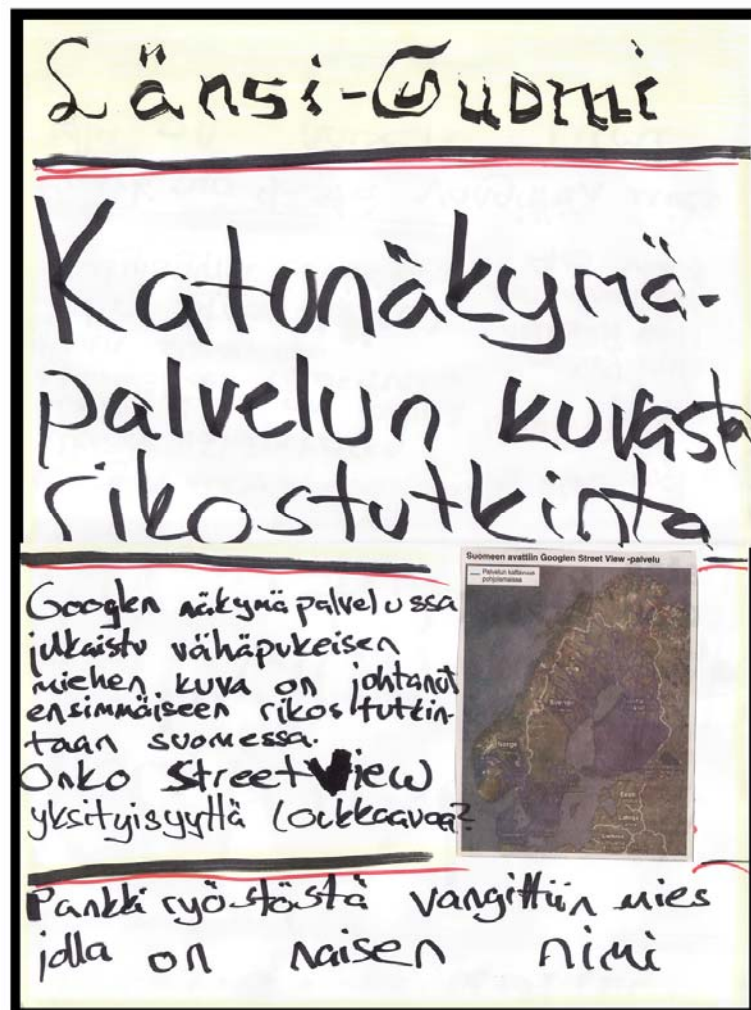 Länsi-Suomi
Katunäkymä-
palvelun kuvasta
rikostutkinta
Googlen näkymäpalvelussa
julkaistu vähäpukeisen
miehen kuva on johtanut
ensimmäiseen rikostutkin-
taan suomessa.
Onko Street View
yksityisyyttä loukkaavaa?
Suomeen avattiin Googlen Street View -palvelu
Palvelun kattavuus
pohjolamaissa
Sverige
Norge
Eesti
Latvija
Pankkiryöstöstä vangittiin mies
jolla on naisen nimi